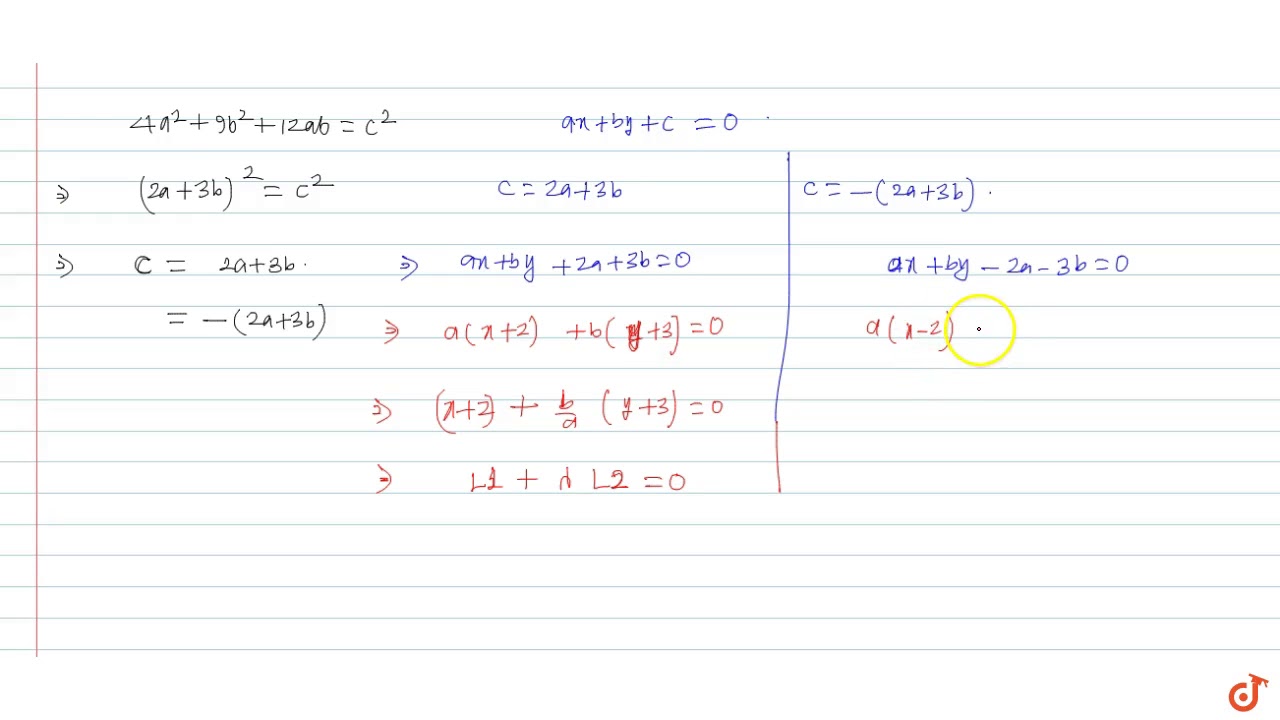 4a²+9b²+12ab = c²
ax+by+c = 0
⇒ (2a+3b)² = c²
c = 2a+3b
c = -(2a+3b).
⇒ c = 2a+3b.
⇒ ax+by +2a+3b=0
ax+by-2a-3b=0
= -(2a+3b)
⇒ a(x+2) +b(y+3]=0
a(x-2)
⇒ (x+2) + b/a (y+3)=0
⇒ L1 + λ L2 =0